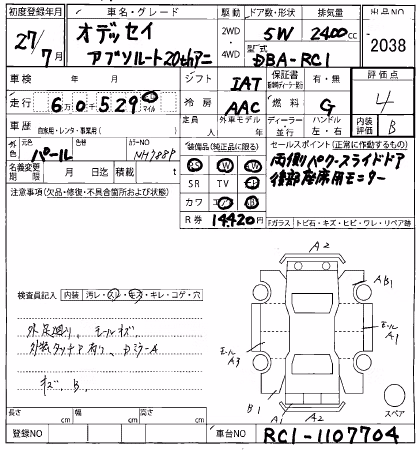 初度登録年月 車名・グレード 駆動 ドア数・形状 排気量 出品NO
27/7月 オデッセイ 2WD 5W 2400cc 2038
アブソルート20thアニ 4WD 型式 DBA-RC1
車検 年 月 シフト IAT 保証書 有・無 評価点
走行 6万0千529 km マイル 冷房 AAC 燃料 G 4
車歴 自家用・レンタ・事業用( ) 定員 人 外車モデル 年 ディーラー 並行 ハンドル 左・右 内装評価 B
外 元色 パール 色替 カラーNO NH788P 装備品(純正品に限る) セールスポイント (正常に作動するもの)
名義変更期限 月 日迄 積載 t SR TV 両側パワースライドドア
注意事項(欠品・修復・不具合箇所および状態) カワ 後部座席用モニター
R券 14420円
Fガラス トビ石・キズ・ヒビ・ワレ・リペア跡
A2
検査員記入 内装 汚レ・スレ・キズ・キレ・コゲ・穴
AB1
外足廻り、モールキズ
モール A3
モール A1
外装タッチア有り、
キズ、B、
B1
A1
A2
スペア
長さ cm 幅 cm 高さ cm
登録NO 車台NO RC1-1107704